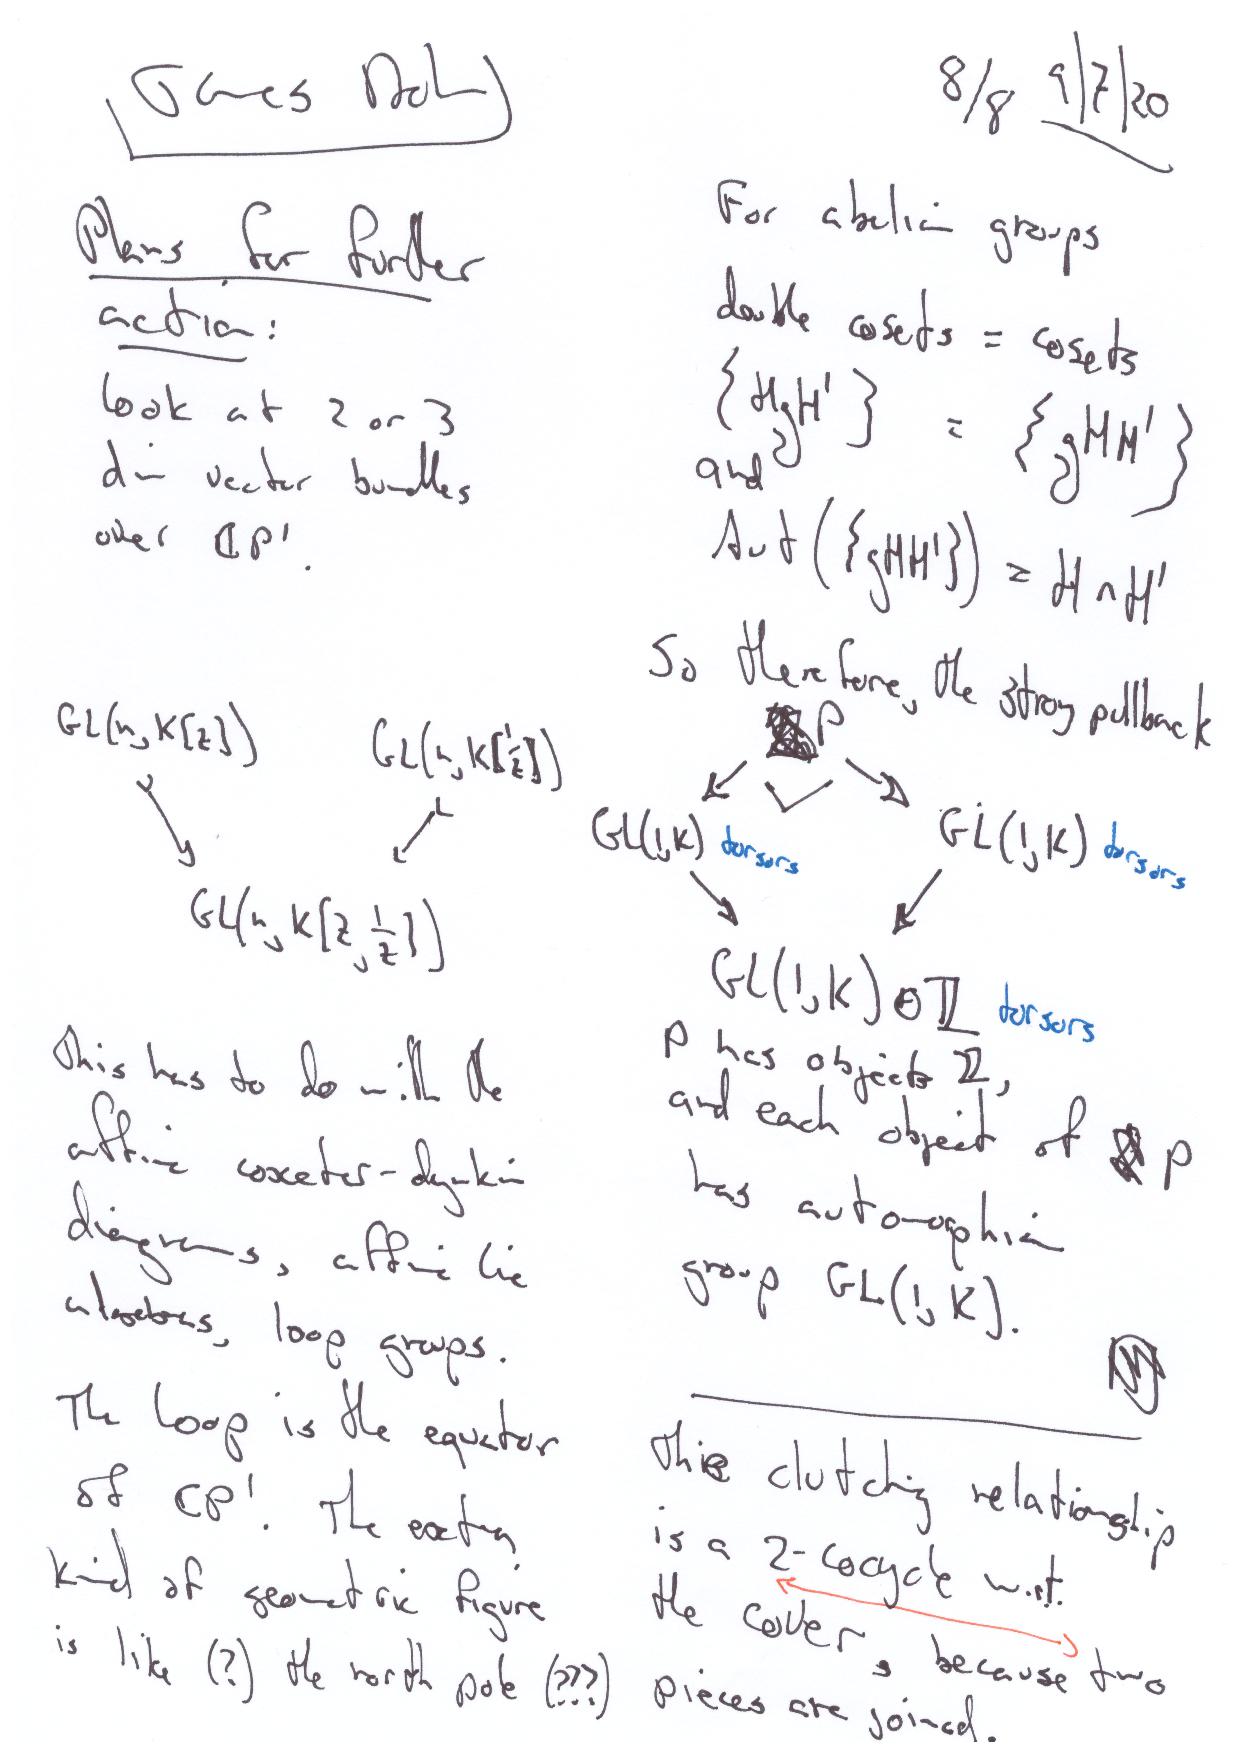 James Dol
8/8 9/7/20
Plans for further
action:
look at 2 or 3
dim vector bundles
over ℂP¹.
GL(n, K[z])
GL(n, K[1/z])
GL(n, K[z, 1/z])
This has to do with the
affine coxeter-dynkin
diagrams, affine lie
algebras, loop groups.
The loop is the equator
of ℂP¹. The
kind of geometric figure
is like (?) the north pole (???)
For abelian groups
double cosets = cosets
{HgH'} = {gHH'}
and
Aut({gHH'}) = H ∩ H'
So therefore, the strong pullback
P
GL(1,K) torsors
GL(1,K) torsors
GL(1,K) ⊕ ℤ torsors
P has objects ℤ,
and each object of P
has automorphism
group GL(1,K).
This clutching relationship
is a 2-cocycle w.r.t.
the cover, because two
pieces are joined.